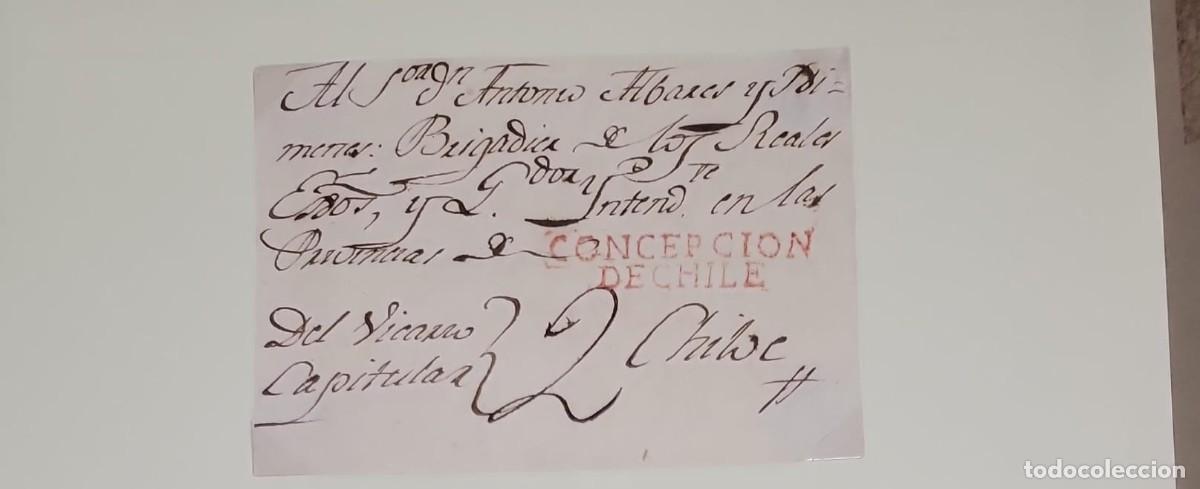 Al S.or d.n Antonio Albares y Xi=
menes: Brigadier de los Reales
Extos, y G.dor Yntend.te en las
Provincias de
CONCEPCION
DE CHILE
Del Vicario
Capitular
2
Chiloe
todocoleccion